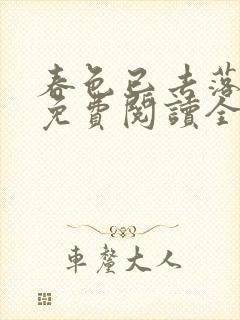 春色已去落
免費閱讀全
車釐大人